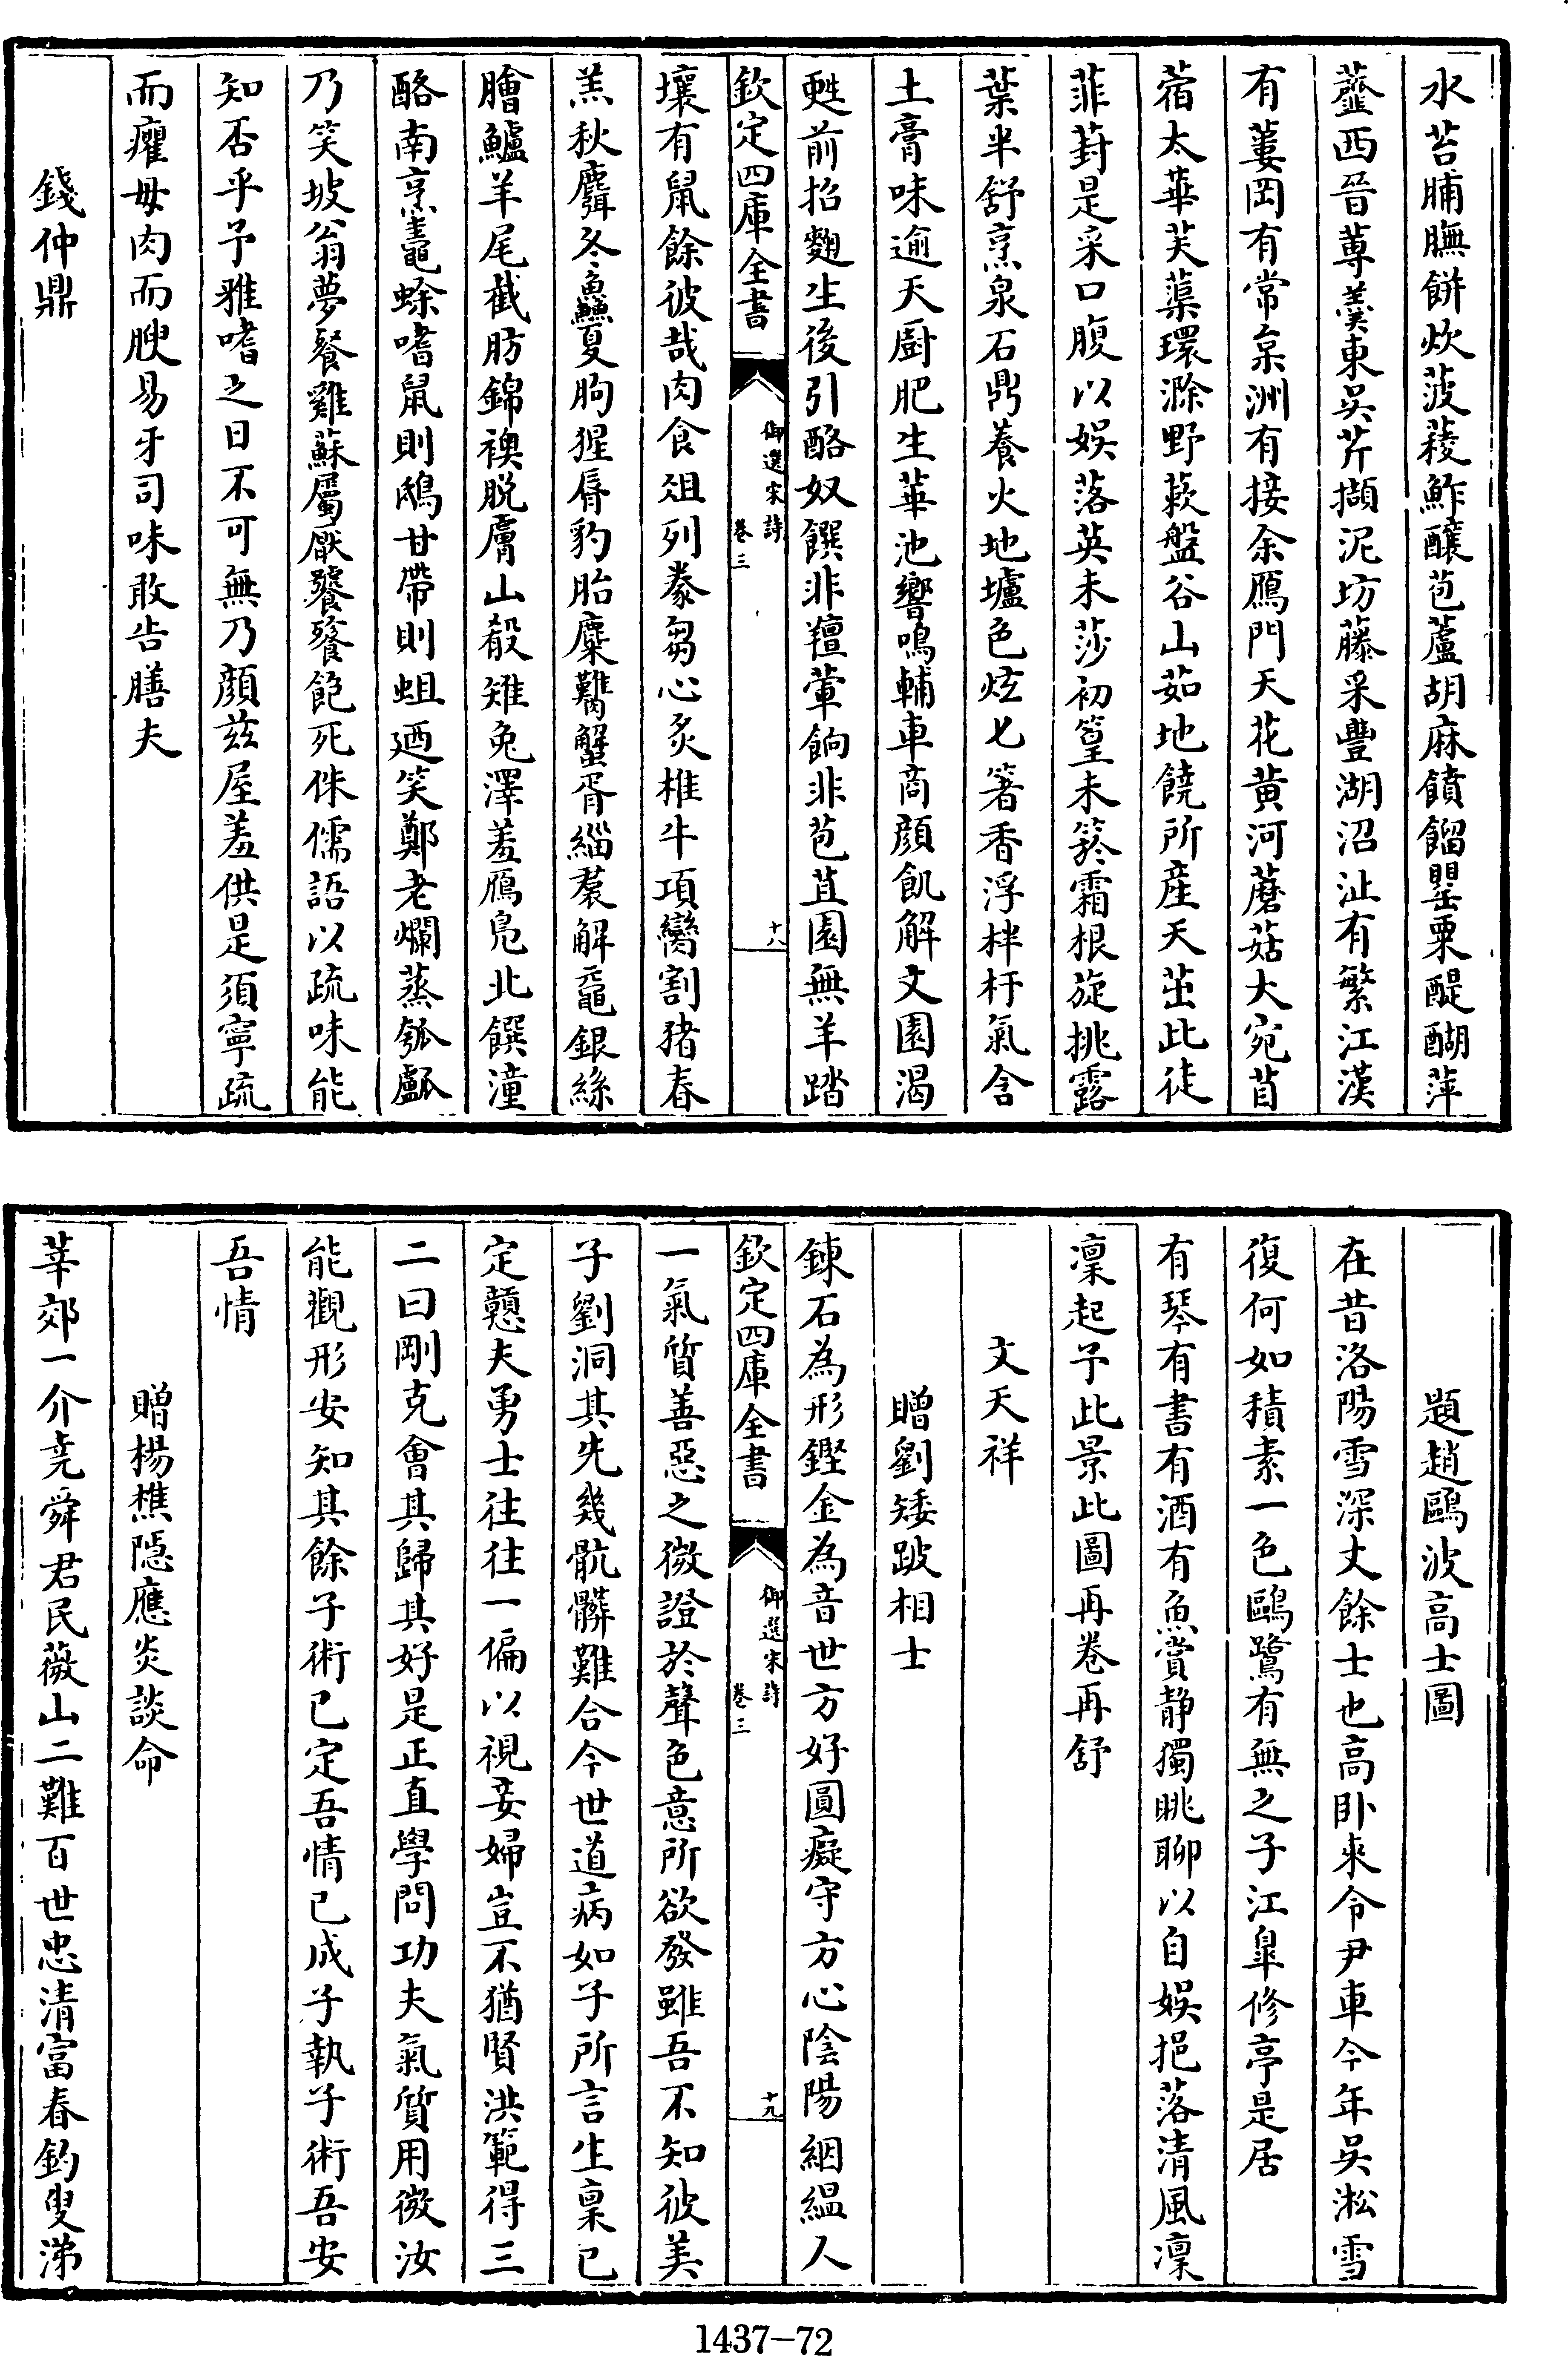 水苔脯膴餅炊菠薐鮓釀苞蘆胡麻饙餾罌粟醍醐萍
虀西晉蓴羮東吳芹擷泥坊藤采豐湖沼沚有繁江漢
有蔞岡有常枲洲有接余鴈門天花黄河蘑菇大宛苜
蓿太華芙蕖環滁野蔌盤谷山茹地饒所産天茁此徒
菲葑是采口腹以娱落英未莎初篁未箊霜根旋挑露
葉半舒烹泉石鼎養火地壚色炫匕箸香浮柈杅氣含
土膏味逾天厨肥生華池響鳴輔車商顔飢解文園渴
甦前招麴生後引酪奴饌非羶葷餉非苞苴園無羊踏
欽定四庫全書
御選宋詩
卷三
十八
壤有鼠餘彼哉肉食俎列豢芻心炙椎牛項臠割猪春
羔秋麛冬鱻夏朐猩脣豹胎麋臡蟹胥緇裠解黿銀絲
膾鱸羊尾截肪錦襖脱膚山殽雉兔澤羞鴈凫北饌潼
酪南烹鼃蜍嗜鼠則鴟甘帶則蛆廼笑鄭老爛蒸瓠壺
乃笑坡翁夢餐雞蘇屬厭饕餮飽死侏儒語以疏味能
知否乎予雅嗜之日不可無乃顔兹屋羞供是須寧疏
而癯毋肉而腴易牙司味敢告膳夫
錢仲鼎
題趙鷗波高士圖
在昔洛陽雪深丈餘士也高卧來令尹車今年吳淞雪
復何如積素一色鷗鷺有無之子江臯修亭是居
有琴有書有酒有魚賞静獨眺聊以自娱挹落清風凜
凜起予此景此圖再卷再舒
文天祥
贈劉矮跛相士
鍊石為形鏗金為音世方好圓癡守方心陰陽絪緼人
欽定四庫全書
御選宋詩
卷三
十九
一氣質善惡之微證於聲色意所欲發雖吾不知彼美
子劉洞其先幾骯髒難合今世道病如子所言生稟已
定戆夫勇士往往一偏以視妾婦豈不猶賢洪範得三
二曰剛克會其歸其好是正直學問功夫氣質用微汝
能觀形安知其餘子術已定吾情已成子執子術吾安
吾情
贈楊樵隱應炎談命
莘郊一介堯舜君民薇山二難百世忠清富春釣叟涕
1437-72